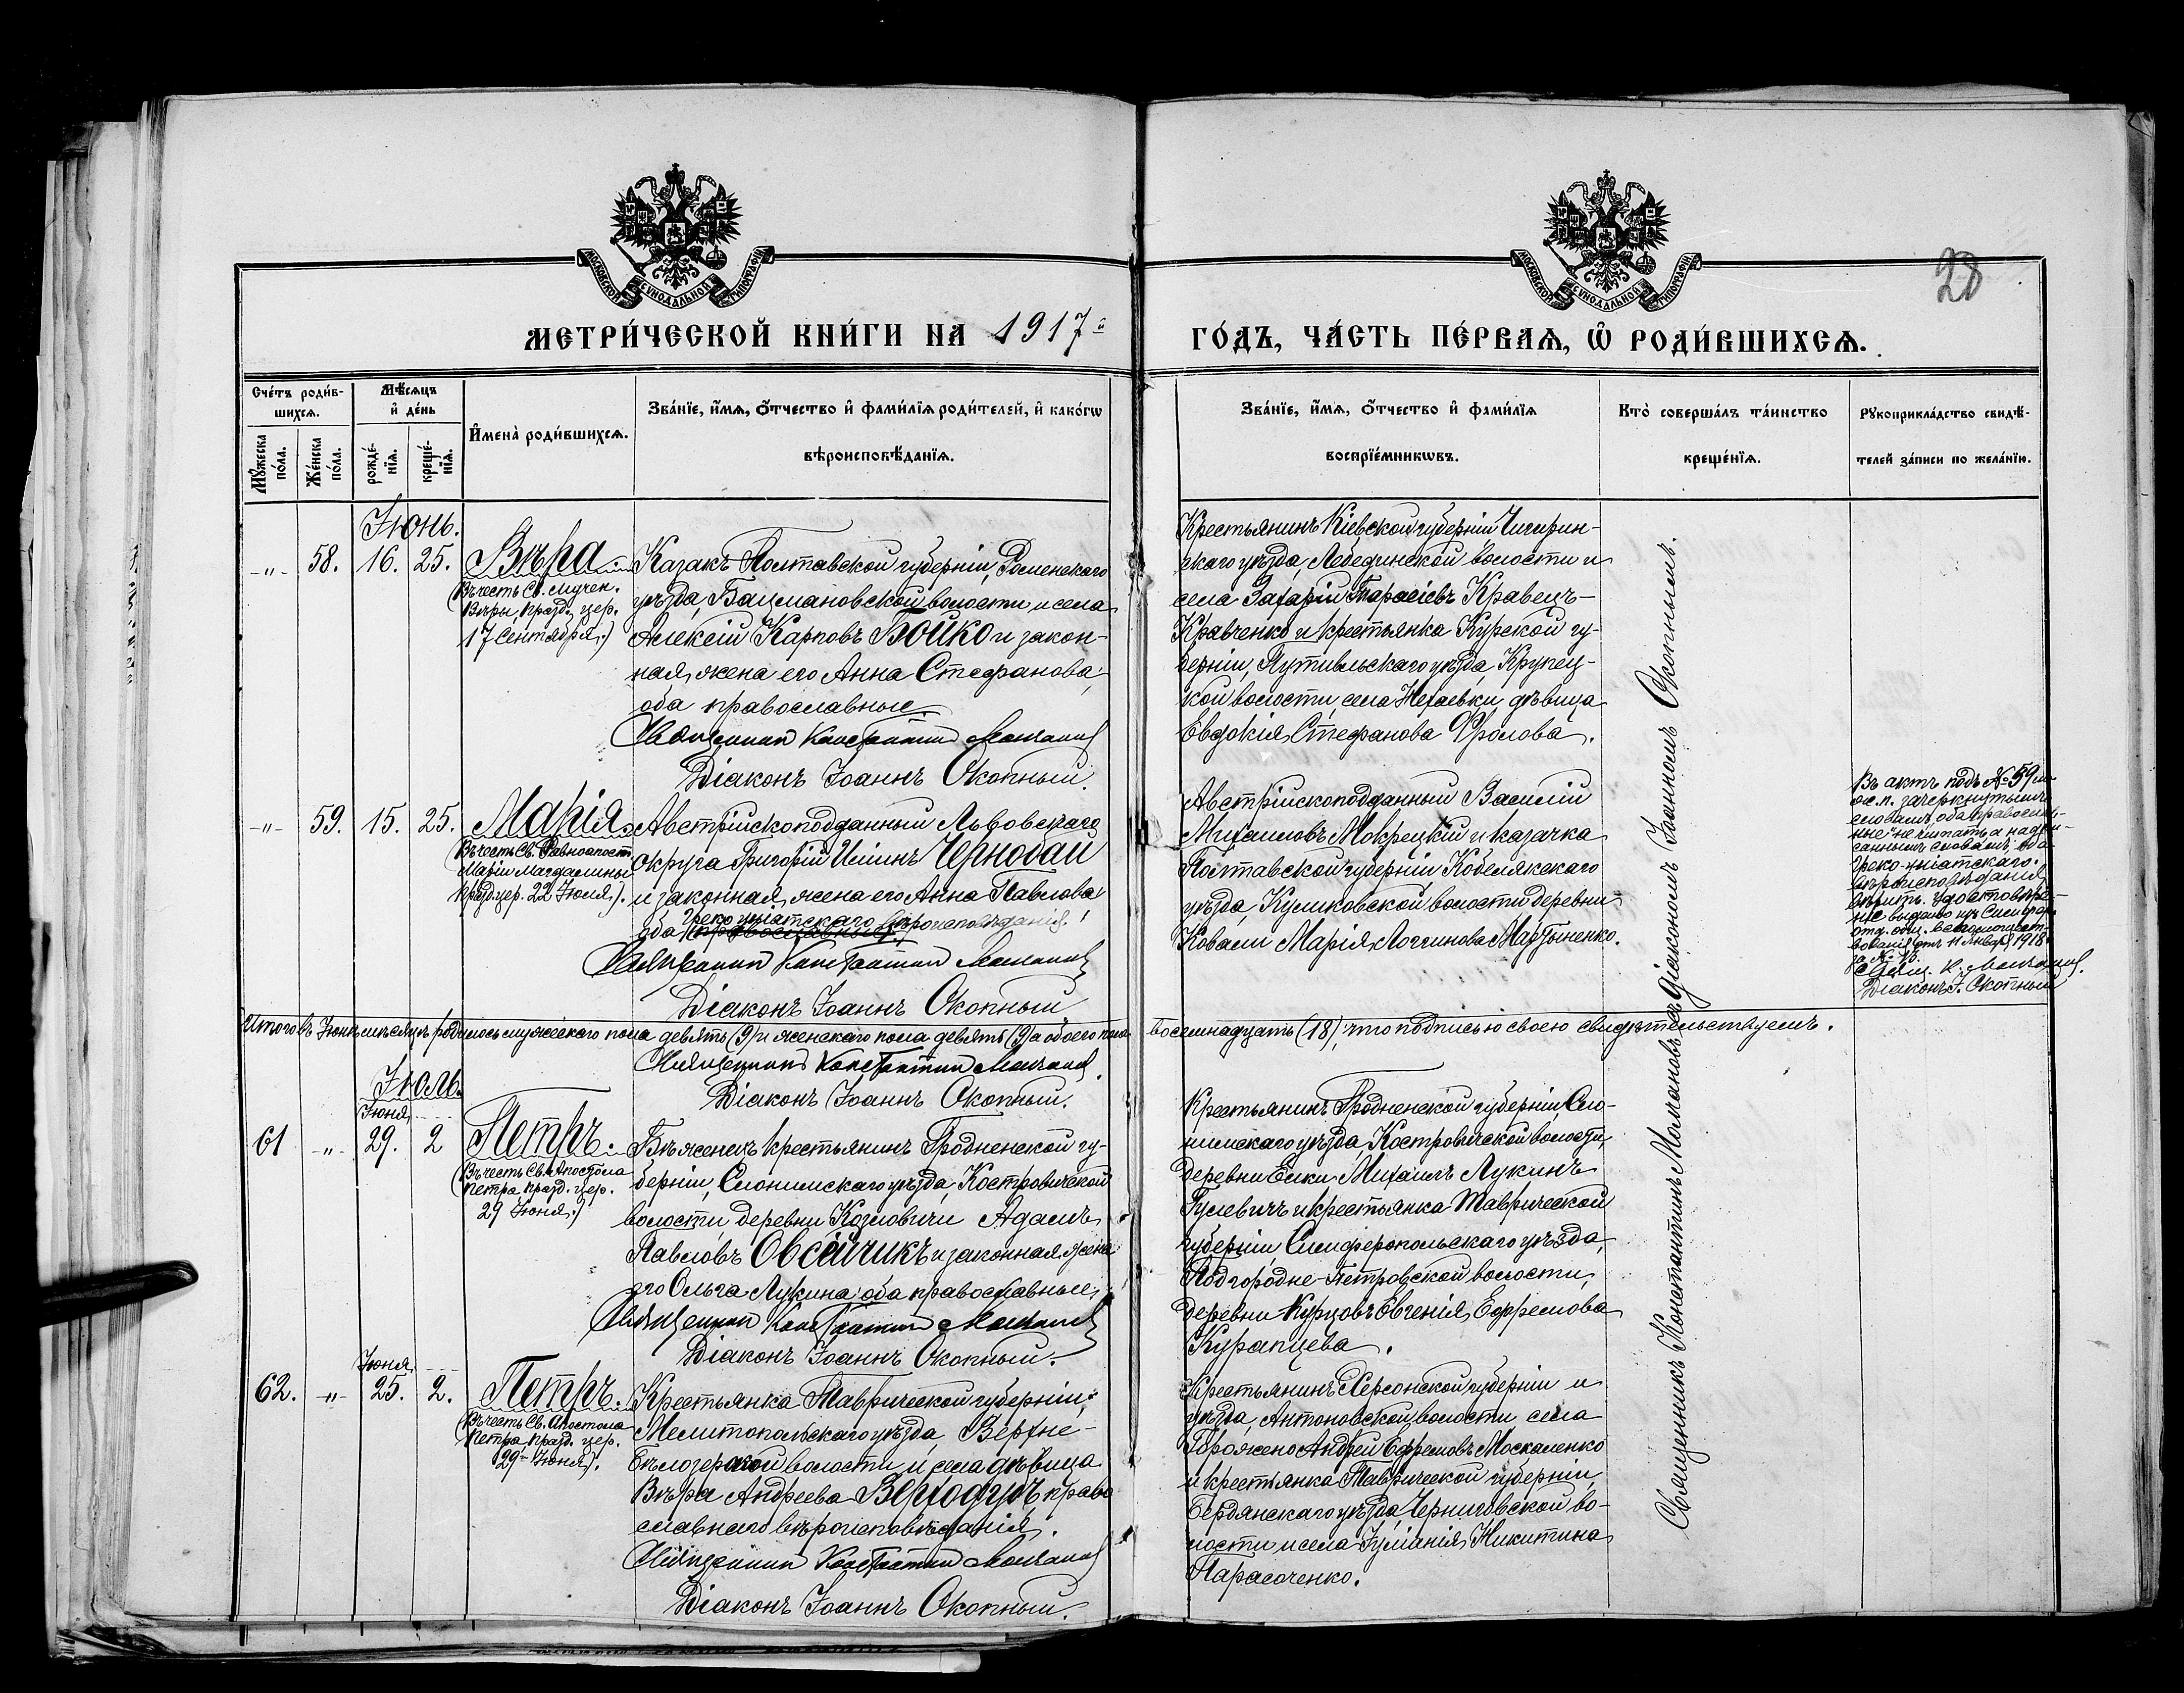 МОСКОВСКОЙ СѴНОДАЛЬНОЙ ТИПОГРАФІИ
МОСКОВСКОЙ СѴНОДАЛЬНОЙ ТИПОГРАФІИ
28
МЕТРИ́ЧЕСКОЙ КНИ́ГИ НА 1917й
ГО́ДЪ, ЧА́СТЬ ПЕ́РВАѦ, Ѡ҆ РОДИ́ВШИХСѦ.
Сче́тъ роди́в-
шихсѧ.
Мꙋ́жеска
по́ла.
Же́нска
по́ла.
Мѣ́сѧцъ
и҆ де́нь
рожде́-
нїѧ.
креще́-
нїѧ.
И҆мена̀ роди́вшихсѧ.
Зва́нїе, и҆́мѧ, ѻ҆́тчество и҆ фами́лїѧ роди́телей, и҆ како́гѡ
вѣроисповѣ́данїѧ.
Зва́нїе, и҆́мѧ, ѻ҆́тчество и҆ фами́лїѧ
воспрїе́мникѡвъ.
Кто̀ соверша́лъ та́инство
креще́нїѧ.
Рꙋкоприкла́дство свидѣ́-
телей за́писи по жела́нїю.
Іюнь.
-"- 58. 16. 25. Вѣра.
(Въ честь Св. мучен.
Вѣры, празд. цер.
17 Сентября.)
Казакъ Полтавской губерніи, Роменскаго
уѣзда, Бацмановской волости и села
Алексій Карповъ Бойко и закон-
ная жена его Анна Стефанова,
оба православные.
Священникъ Константинъ Момановъ
Діаконъ Іоаннъ Окопный.
Крестьянинъ Кіевской губерніи Чигирин-
скаго уѣзда, Лебединской волости и
села Захарій Тарасіевъ Кравецъ-
Кравченко и крестьянка Курской гу-
берніи, Путивльскаго уѣзда, Крупец-
кой волости, села Нехаевки, дѣвица
Евдокія Стефанова Фролова.
-"- 59. 15. 25. Марія.
(Въ честь Св. Равноапост.
Маріи Магдалины
празд. цер. 22 Іюля).
Австрійскоподданный Львовскаго
округа Григорій Ильинъ Чернобай
и законная жена его Анна Павлова
греко-уніатскаго вѣроисповѣданія!
оба (православные.)
Священникъ Константинъ Момановъ
Діаконъ Іоаннъ Окопный
Австрійскоподданный Василій
Михаиловъ Мокрецкій и казачка
Полтавской губерніи Кобелякскаго
уѣзда, Куликовской волости деревни
Ковали Марія Логгинова Мартыненко.
Въ актѣ подъ № 59 м
ж. п. зачеркнутымъ
словамъ, оба православ-
ные" не читать, а надпи-
саннымъ словамъ, оба
греко-уніатскаго
вѣроисповѣданія
вѣрить. Удостовѣре-
ніе выдано изъ Симфер.
отд. общ.
отъ 11 Января 1918
за №
Свящ. К. Момановъ.
Діаконъ І. Окопный
Итого въ Іюнѣ мѣсяцѣ родилось мужескаго пола девять (9) и женскаго пола девять (9) а обоего пола восемнадцать (18), что подписью своею свидѣтельствуемъ.
Священникъ Константинъ Момановъ.
Діаконъ Іоаннъ Окопный.
Іюль.
Іюня
61 -"- 29. 2 Петръ.
(Въ честь Св. Апостола
Петра, празд. цер.
29 Іюня.)
Бѣженецъ крестьянинъ Гродненской гу-
берніи, Слонимскаго уѣзда, Костровичской
волости, деревни Козловичи Адамъ
Павловъ Овсейчикъ и законная жена
его Ольга Лукина, оба православные,
Священникъ Константинъ Момановъ
Діаконъ Іоаннъ Окопный.
Крестьянинъ Гродненской губерніи, Сло-
нимскаго уѣзда, Костровичской волости,
деревни Елки Михаилъ Лукинъ
Гулевичъ и крестьянка Таврической
губерніи, Симферопольскаго уѣзда,
Подгородне-Петровской волости,
деревни Курцовъ Евгенія Ефремова
Курапцева.
Іюня
62. -"- 25. 2. Петръ.
(Въ честь Св. Апостола
Петра, празд. цер.
29 Іюня).
Крестьянка Таврической губерніи,
Мелитопольскаго уѣзда Верхне-
Бѣлозерской волости и села дѣвица
Вѣра Андреева Верхогубъ, право
славнаго вѣроисповѣданія.
Священникъ Константинъ Момановъ
Діаконъ Іоаннъ Окопный.
Крестьянинъ Херсонской губерніи и
уѣзда, Антоновской волости, села
Горожено Андрей Ефремовъ Москаленко
и крестьянка Таврической губерніи,
Бердянскаго уѣзда, Черниговской во-
лости и села Іуліанія Никитина
Парасоченко.
Священникъ Константинъ Момановъ съ діакономъ Іоанномъ Окопнымъ.